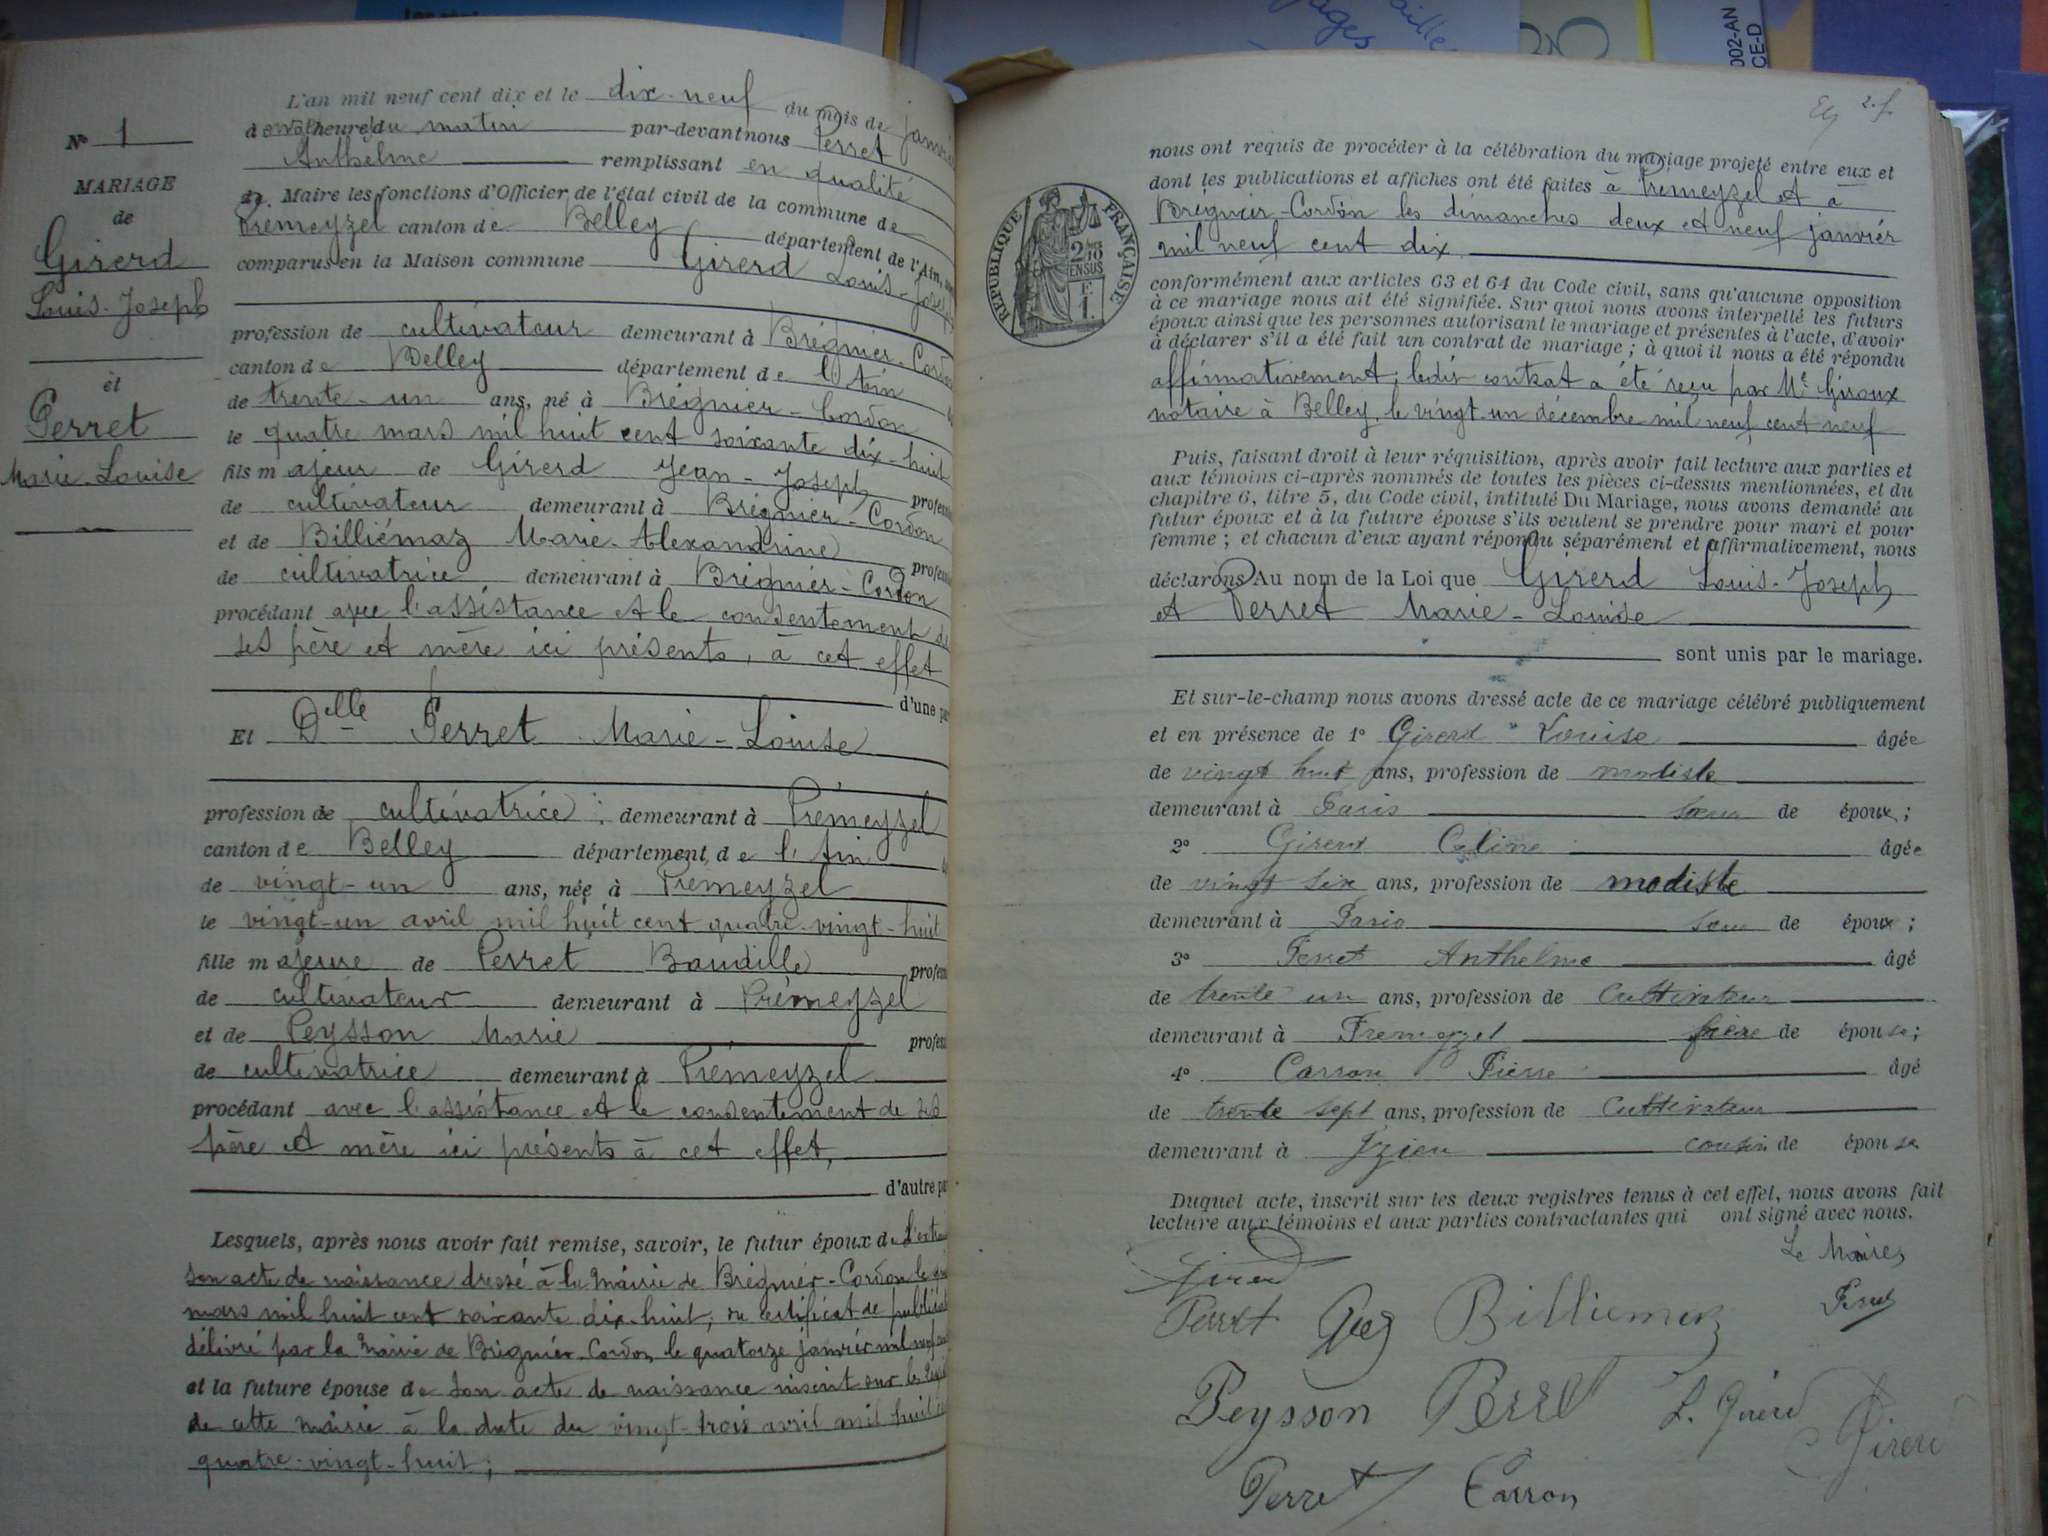 Nº 1
MARIAGE
de
Girerd
Louis-Joseph
et
Perret
Marie Louise
L'an mil neuf cent dix et le dix-neuf du mois de janvier
heure du matin par-devant nous Perret
Anthelme remplissant en qualité
de Maire les fonctions d'Officier de l'état civil de la commune de
Prémeyzel canton de Belley département de l'Ain,
comparus en la Maison commune Girerd Louis-Joseph
profession de cultivateur demeurant à Brégnier-Cordon
canton de Belley département de l'Ain
de trente-un ans, né à Brégnier-Cordon
le quatre mars mil huit cent soixante dix-huit
fils majeur de Girerd Jean-Joseph
de cultivateur demeurant à Brégnier-Cordon
et de Billiémaz Marie-Alexandrine
de cultivatrice demeurant à Brégnier-Cordon
procédant avec l'assistance et le consentement de
ses père et mère ici présents, à cet effet
d'une
Et Delle Perret Marie-Louise
profession de cultivatrice demeurant à Prémeyzel
canton de Belley département de l'Ain
de vingt-un ans, née à Prémeyzel
le vingt-un avril mil huit cent quatre-vingt-huit
fille majeure de Perret Baudille
de cultivateur demeurant à Prémeyzel
et de Peysson Marie
de cultivatrice demeurant à Prémeyzel
procédant avec l'assistance et le consentement de ses
père et mère ici présents à cet effet,
d'autre
Lesquels, après nous avoir fait remise, savoir, le futur époux de
son acte de naissance dressé à la Mairie de Brégnier-Cordon le
mars mil huit cent soixante dix-huit, du certificat de
délivré par la Mairie de Brégnier-Cordon, le quatorze janvier mil neuf
et la future épouse de son acte de naissance inscrit sur les
de cette mairie à la date du vingt-trois avril mil huit
quatre-vingt-huit;
2. f.
nous ont requis de procéder à la célébration du mariage projeté entre eux et
dont les publications et affiches ont été faites à Prémeyzel et à
Brégnier-Cordon les dimanches deux et neuf janvier
mil neuf cent dix
REPUBLIQUE FRANÇAISE
2/10
EN SUS
1.
conformément aux articles 63 et 64 du Code civil, sans qu'aucune opposition
à ce mariage nous ait été signifiée. Sur quoi nous avons interpellé les futurs
époux ainsi que les personnes autorisant le mariage et présentes à l'acte, d'avoir
à déclarer s'il a été fait un contrat de mariage ; à quoi il nous a été répondu
affirmativement; ledit contrat a été reçu par Me Giroux
notaire à Belley, le vingt-un décembre mil neuf cent neuf
Puis, faisant droit à leur réquisition, après avoir fait lecture aux parties et
aux témoins ci-après nommés de toutes les pièces ci-dessus mentionnées, et du
chapitre 6, titre 5, du Code civil, intitulé Du Mariage, nous avons demandé au
futur époux et à la future épouse s'ils veulent se prendre pour mari et pour
femme ; et chacun d'eux ayant répondu séparément et affirmativement, nous
déclarons Au nom de la Loi que Girerd Louis-Joseph
et Perret Marie-Louise
sont unis par le mariage.
Et sur-le-champ nous avons dressé acte de ce mariage célébré publiquement
et en présence de 1º Girerd Louise âgée
de vingt huit ans, profession de modiste
demeurant à Paris soeur de époux ;
2º Girerd Céline âgée
de vingt six ans, profession de modiste
demeurant à Paris soeur de époux ;
3º Perret Anthelme âgé
de trente un ans, profession de Cultivateur
demeurant à Premeyzel frère de épouse ;
4º Carron Pierre âgé
de trente sept ans, profession de Cultivateur
demeurant à Izieu cousin de épouse
Duquel acte, inscrit sur les deux registres tenus à cet effet, nous avons fait
lecture aux témoins et aux parties contractantes qui ont signé avec nous.
Le Maire,
Girerd
Perret Billiemaz Perret
Peysson Perret L. Girerd C Girerd
Perret Carron
002-AN
CE-D